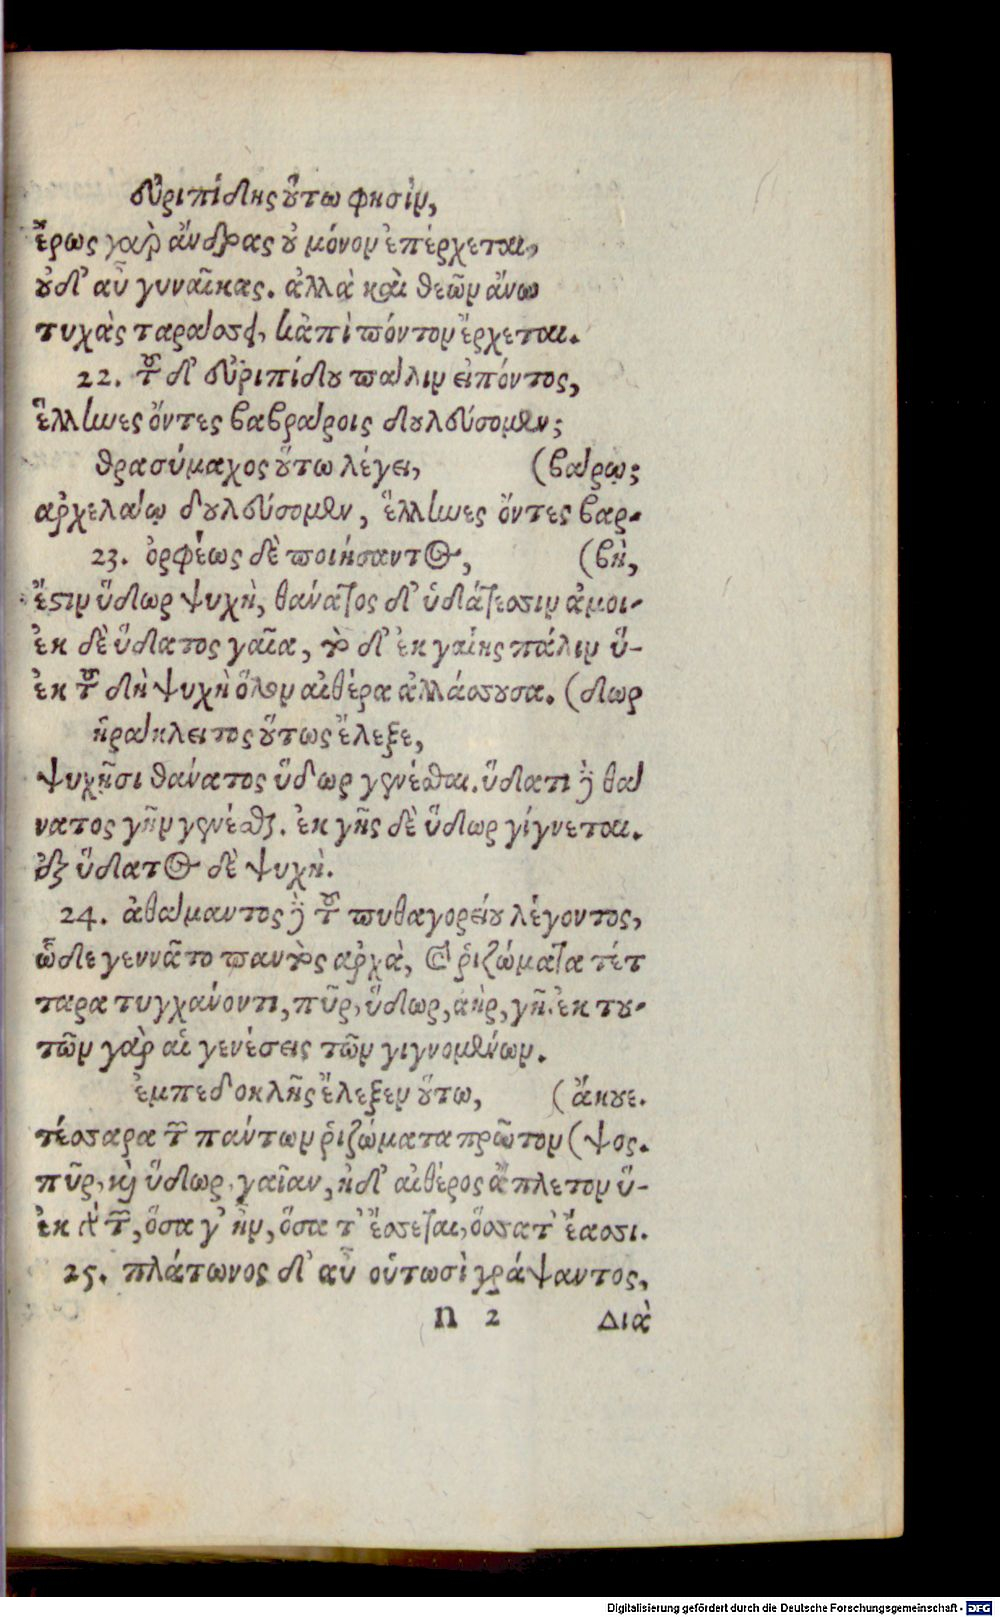 ἐυριπίδης ὅυτω φησὶν,
ἔρως γὰρ ἄνδρας ὀυ μόνον ἐπέρχεται,
ὀυδ᾽ αὖ γυναῖκας. ἀλλὰ καὶ θεῶν ἄνω
τυχὰς ταράσσει, κἀπὶ πόντον ἔρχεται.
22. τοῦ δ᾽ ἐυριπίδου πάλιν ειπόντος,
ἕλληνες ὄντες βαβράροις δουλεύσομεν;
θρασύμαχος ὅυτω λέγει, (βάρῳ;
ἀρχελάῳ δουλεύσομεν, ἕλληνες ὄντες βαρ-
23. ὀρφέως δὲ ποιήσαντος, (βὴ,
ἔστιν ὕδωρ ψυχὴ, θάνατος δ᾽ ὑδάτεσσιν ἀμοι-
ἐκ δὲ ὕδατος γαῖα, τὸ δ᾽ ἐκ γαίης πάλιν ὕ-
ἐκ τοῦ δὴ ψυχὴ ὅλον αἰθέρα ἀλλάσσουσα. (δωρ
ἡράκλειτος ὅυτως ἔλεξε,
ψυχῇσι θάνατος ὕδωρ γενέσθαι. ὕδατι δὲ θά
νατος γῆν γενέσθαι. ἐκ γῆς δὲ ὕδωρ γίγνεται.
ἐξ ὕδατος δὲ ψυχὴ.
24. ἀθάμαντος δὲ τοῦ πυθαγορείου λέγοντος,
ὧδε γεννᾶτο παντὸς ἀρχὰ, καὶ ῥιζώματα τέτ
ταρα τυγχάνοντι, πῦρ, ὕδωρ, ἀὴρ, γῆ. ἐκ του-
τῶν γὰρ αἱ γενέσεις τῶν γιγνομένων.
ἐμπεδοκλῆς ἔλεξεν ὅυτω, (ἄκουε.
τέσσαρα τῶν πάντων ῥιζώματα πρῶτον (ψος.
πῦρ, καὶ ὕδωρ, γαῖαν, ἠδ᾽ αἰθέρος ἄπλετον ὕ-
ἐκ γὰρ τῶν, ὅσα γ᾽ ἦν, ὅσα τ᾽ ἔσσεται, ὅσσα τ᾽ ἔασσι.
25. πλάτωνος δ᾽ αὖ οὑτωσὶ γράψαντος,
n 2 Διὰ
Digitalisierung gefördert durch die Deutsche Forschungsgemeinschaft - DFG